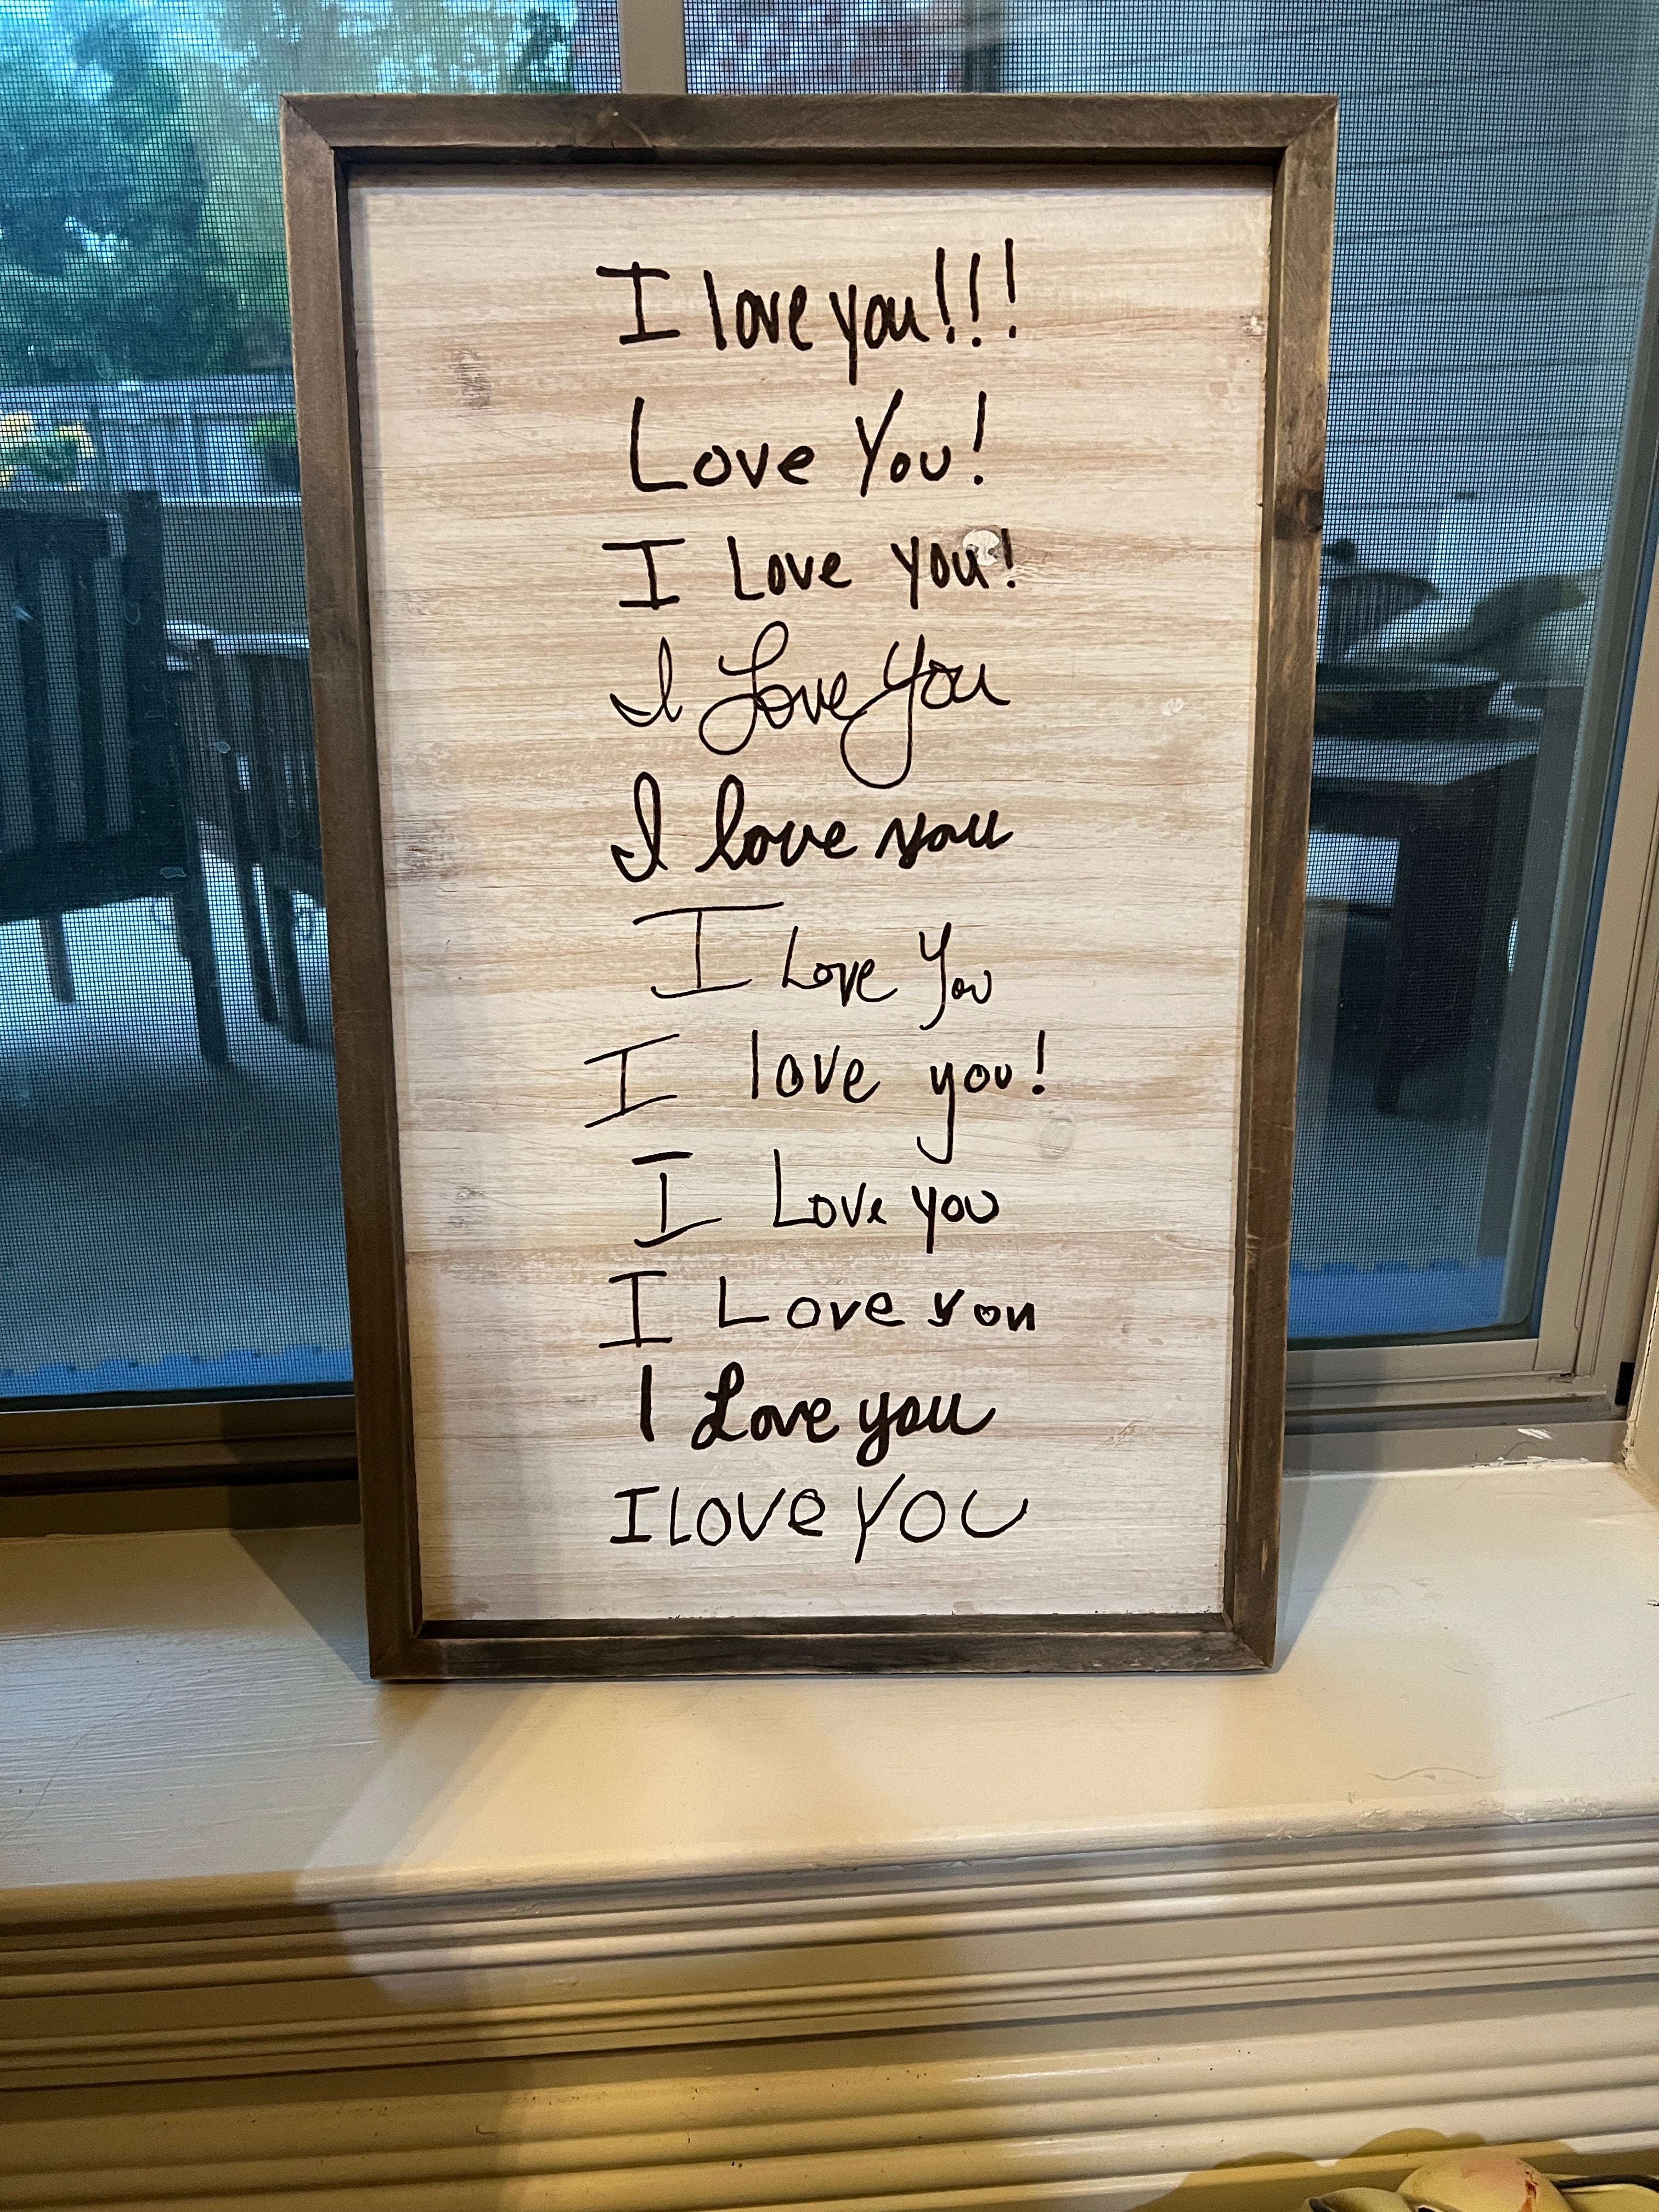 I love you!!!
Love You!
I Love you!
I Love You
I love you
I Love You
I love you!
I Love you
I Love you
I Love you
I LOVE YOU